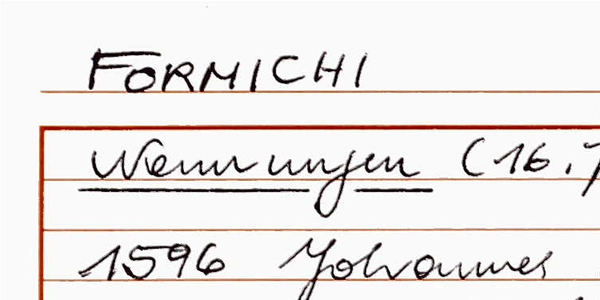 FORMICHI
Nennungen (16.7
1596 Johannes